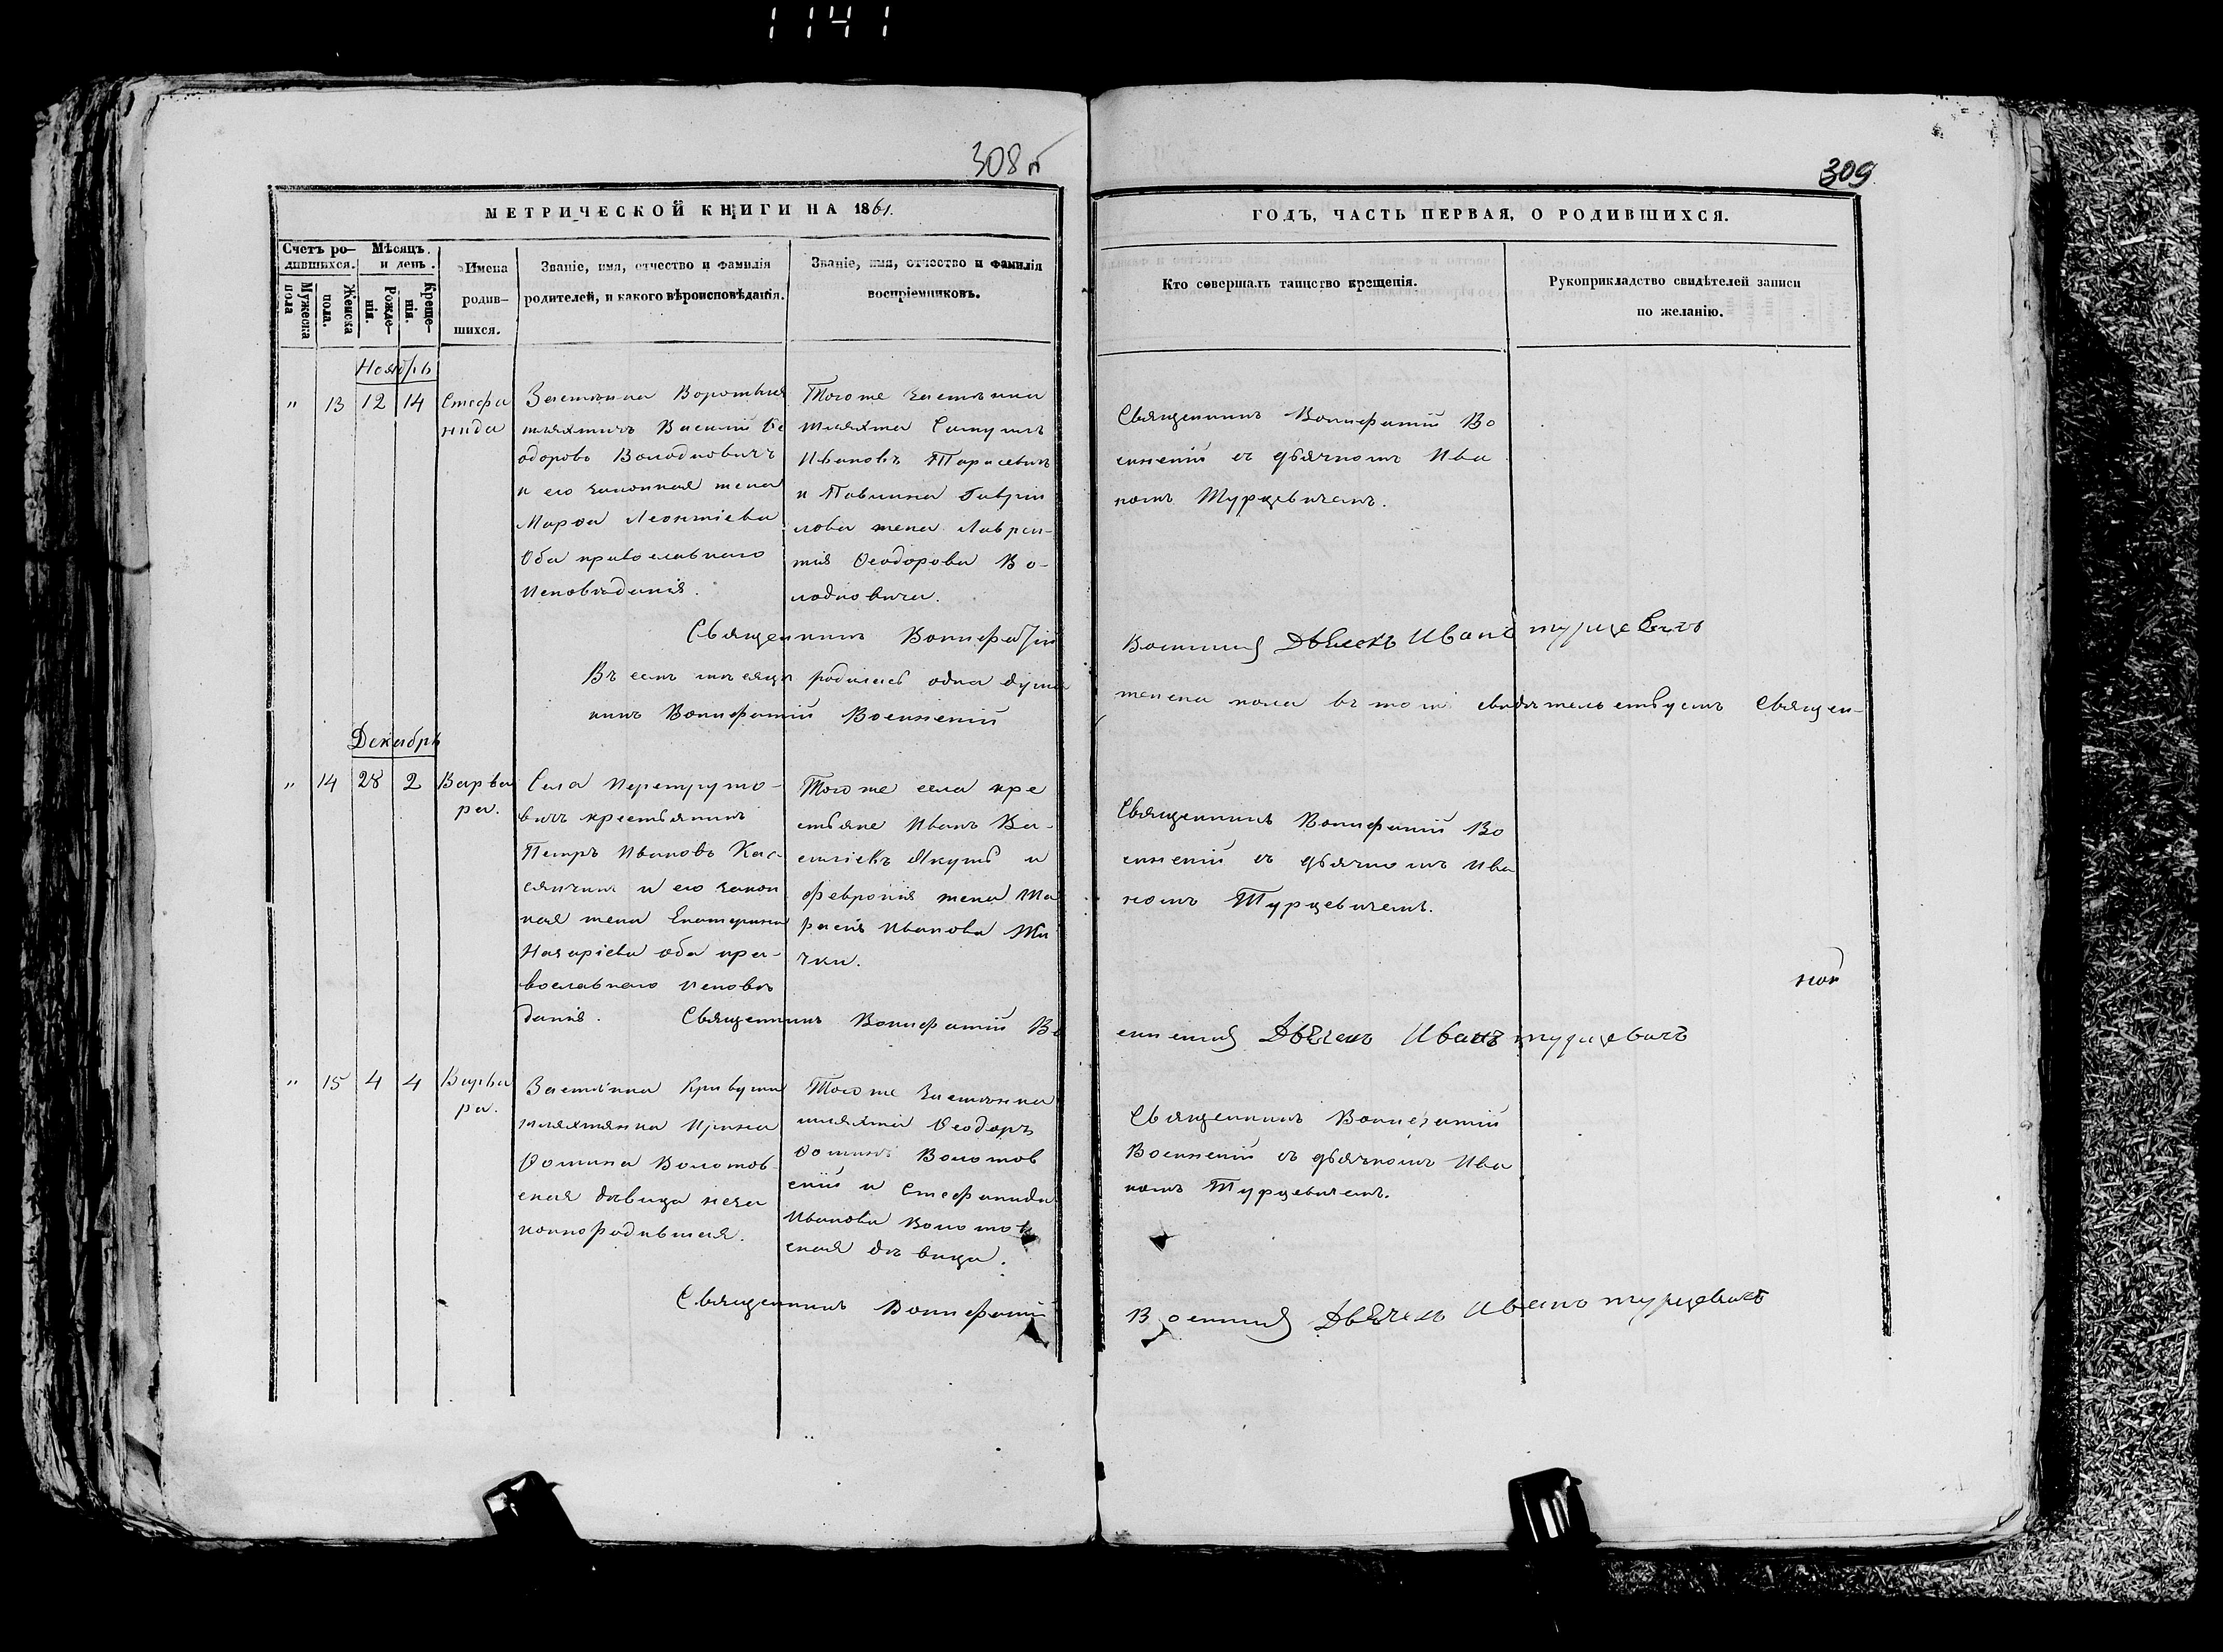 1141
308 об
309.
МЕТРИЧЕСКОЙ КНИГИ НА 1861.
ГОДЪ, ЧАСТЬ ПЕРВАЯ, О РОДИВШИХСЯ.
Счетъ ро-
дившихся.
Мужеска
пола
Женска
пола.
Мѣсяцъ
и день.
Рожде-
нія.
Креще-
нія.
Имена
родив-
шихся.
Званіе, имя, отчество и фамилія
родителей, и какого вѣроисповѣданія.
Званіе, имя, отчество и фамилія
воспріемниковъ.
Кто совершалъ таинство крещенія.
Рукоприкладство свидѣтелей записи
по желанію.
Ноябрь
" 13 12 14
Стефа
нида
Застѣнка
шляхтичъ Василій Ѳе
одоровъ Володковичъ
и его законная жена
Марѳа Леонтіева
Оба православнаго
Исповѣданія.
Того же Застѣнка
шляхта Самуилъ
Ивановъ Тарасевичъ
и Павлина Гавріи
лова жена Лаврен-
тія Ѳеодорова Во-
лодковича.
Священникъ Вонифатій Во
снскій съ дьячкомъ Ива
номъ Турцевичемъ.
Священникъ Вонифатій
Дьячекъ Иванъ Турцевичъ
Въ семъ мѣсяцѣ родилась одна душа
женска пола въ томъ свидѣтельствуетъ Священ-
никъ Вонифатій
Декабрь
" 14 28 2
Варва
ра.
Села Перетруто-
вичъ крестьянинъ
Петръ Ивановъ Кас-
сянчикъ и его закон
ная жена Екатерина
Назаріева оба пра-
вославнаго исповѣ
данія.
Того же села кре
стьяне Иванъ Ва-
силіевъ Якутъ и
Февронія жена Та
расія Иванова
чки.
Священникъ Вонифатій Во
снскій съ дьячкомъ Ива
номъ Турцевичемъ.
Священникъ Вонифатій Во
Дьячекъ Иванъ Турцевичъ
" 15 4 4
Варва
ра.
Застѣнка
шляхтянка Ирина
Ѳомина Волотов
ская дѣвица неза
коннородившая.
Того же Застѣнка
шляхта Ѳеодоръ
Ѳоминъ Волотов
скій и Стефанида
Иванова Волотов
ская дѣвица.
Священникъ Вонифатій
съ дьячкомъ Ива
номъ Турцевичемъ.
Священникъ Вонифатій
Дьячекъ Иванъ Турцевичъ